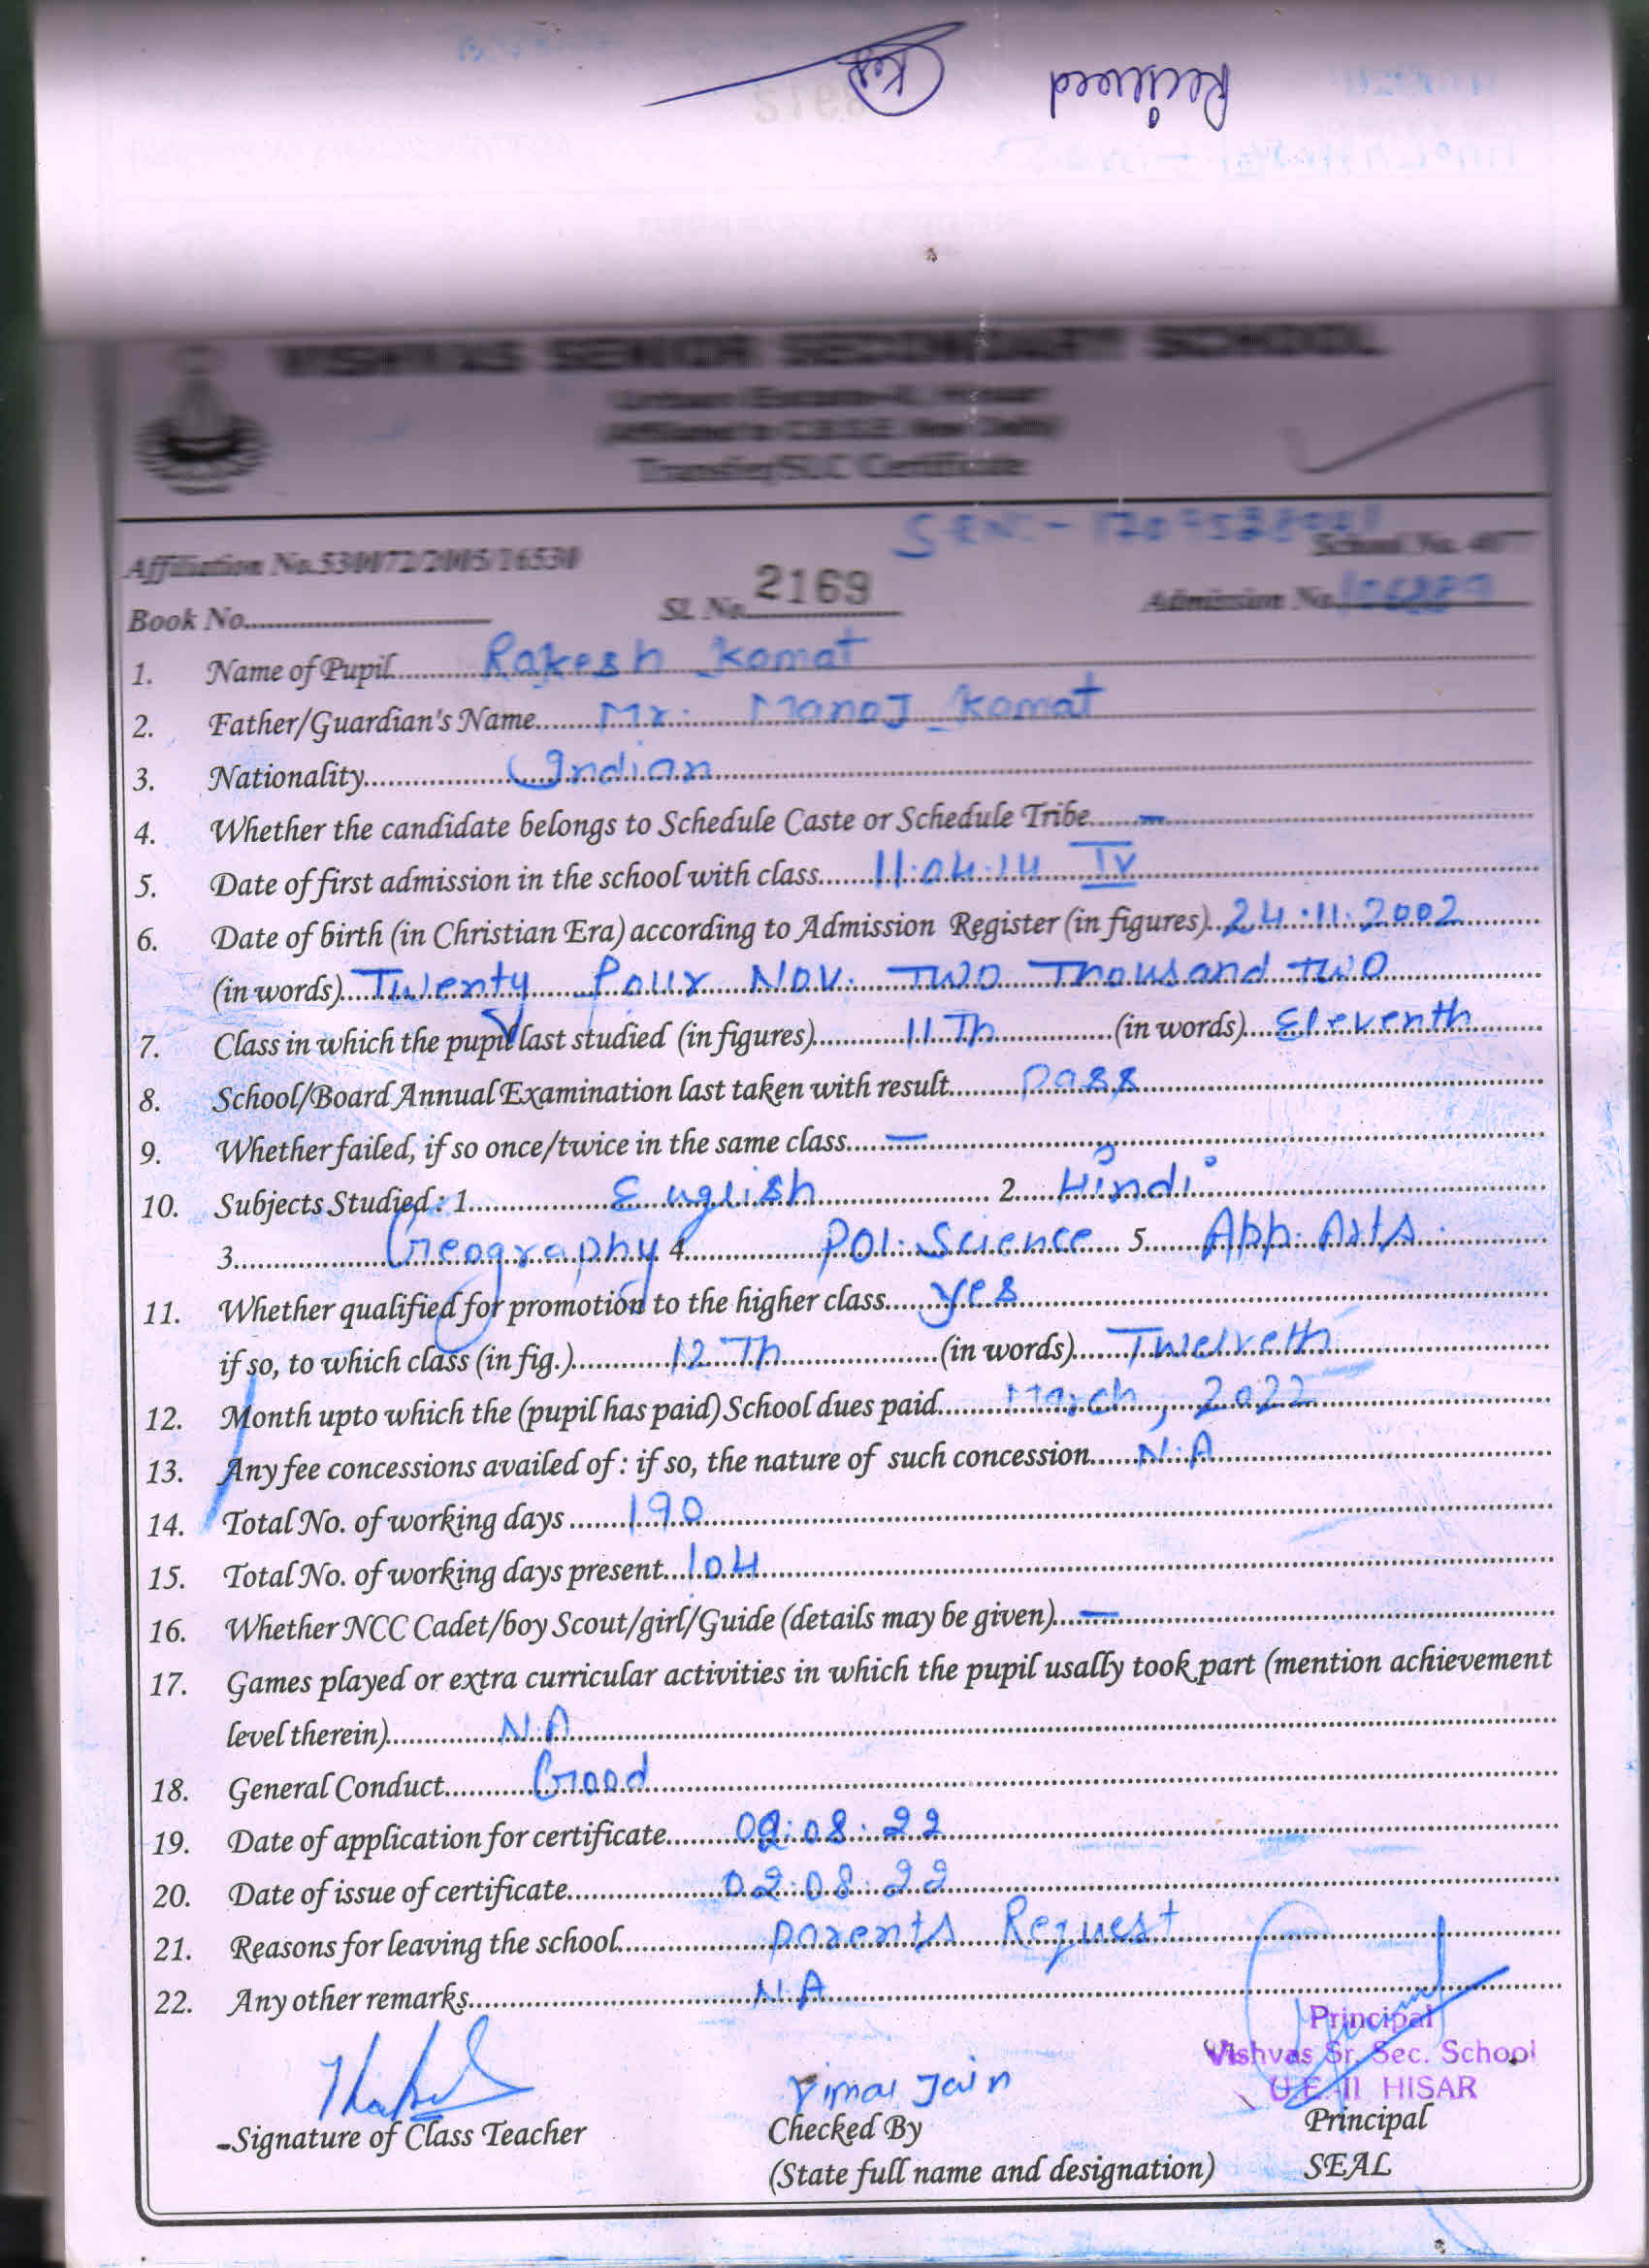 Recieved
VISHVAS SENIOR SECONDARY SCHOOL
Urban Estate-II, Hisar
(Affiliated to C.B.S.E. New Delhi)
Transfer/SLC Certificate
Affiliation No.530072/2005/16530 School No.
Book No. SL No. 2169 Admission No.
1. Name of Pupil Rakesh Komat
2. Father/Guardian's Name Mr. Manoj Komat
3. Nationality Indian
4. Whether the candidate belongs to Schedule Caste or Schedule Tribe —
5. Date of first admission in the school with class 11.04.14 IV
6. Date of birth (in Christian Era) according to Admission Register (in figures) 24.11.2002
(in words) Twenty Four Nov. Two Thousand Two
7. Class in which the pupil last studied (in figures) 11Th (in words) Eleventh
8. School/Board Annual Examination last taken with result Pass
9. Whether failed, if so once/twice in the same class —
10. Subjects Studied : 1. English 2. Hindi
3. Geography 4. Pol. Science 5. App. Arts.
11. Whether qualified for promotion to the higher class yes
if so, to which class (in fig.) 12Th (in words) Twelveth
12. Month upto which the (pupil has paid) School dues paid March, 2022
13. Any fee concessions availed of : if so, the nature of such concession N.A
14. Total No. of working days 190
15. Total No. of working days present 104
16. Whether NCC Cadet/boy Scout/girl/Guide (details may be given) —
17. Games played or extra curricular activities in which the pupil usally took part (mention achievement
level therein) N.A
18. General Conduct Good
19. Date of application for certificate 02.08.22
20. Date of issue of certificate 02.08.22
21. Reasons for leaving the school Parents Request
22. Any other remarks N.A
Principal
Vishvas Sr. Sec. School
U.E.-II HISAR
Vimal Jain
-Signature of Class Teacher Checked By Principal
(State full name and designation) SEAL